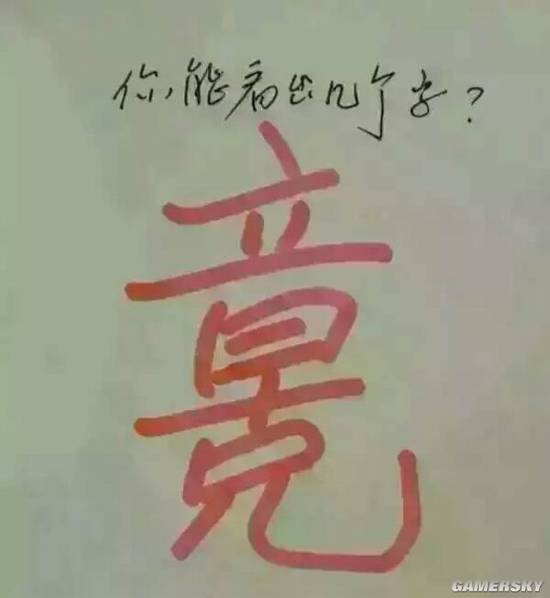 你能看出几个字?
GAMERSKY